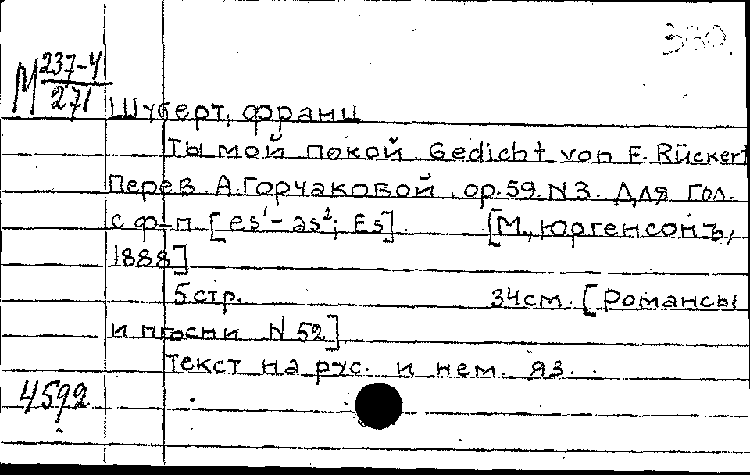 330.
М 237-4
271
Шуберт, франц
Ты мой покой. Gedicht von F. Rückert
Перев. А. Горчаковой. ор. 59. N3. Для гол.
с ф-п [es¹- as²; Es]. [М., Юргенсонъ,
1888]
5 стр. 34 см. [Романсы
и пѣсни N 52]
Текст на рус. и нем. яз.
4592